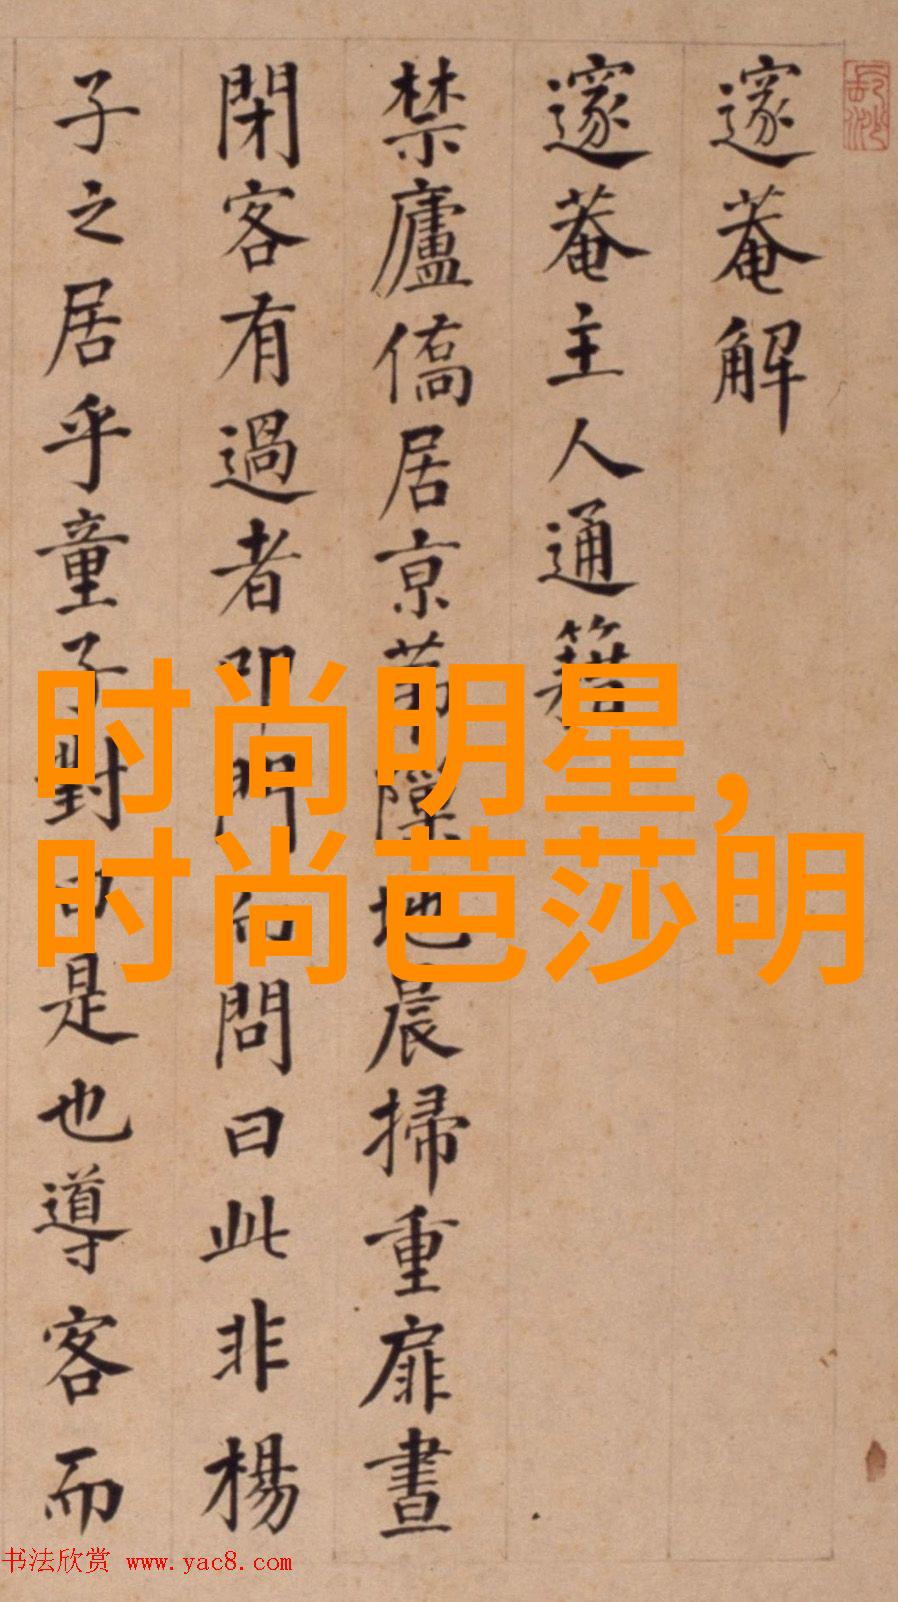 邃菴解
邃菴主人通籍
禁廬僑居京苐隙地晨掃重扉晝
閉客有過者叩門而問曰此非楊
子之居乎童子對曰是也導客而
时尚明星,
时尚芭莎明
书法欣赏 www.yac8.com